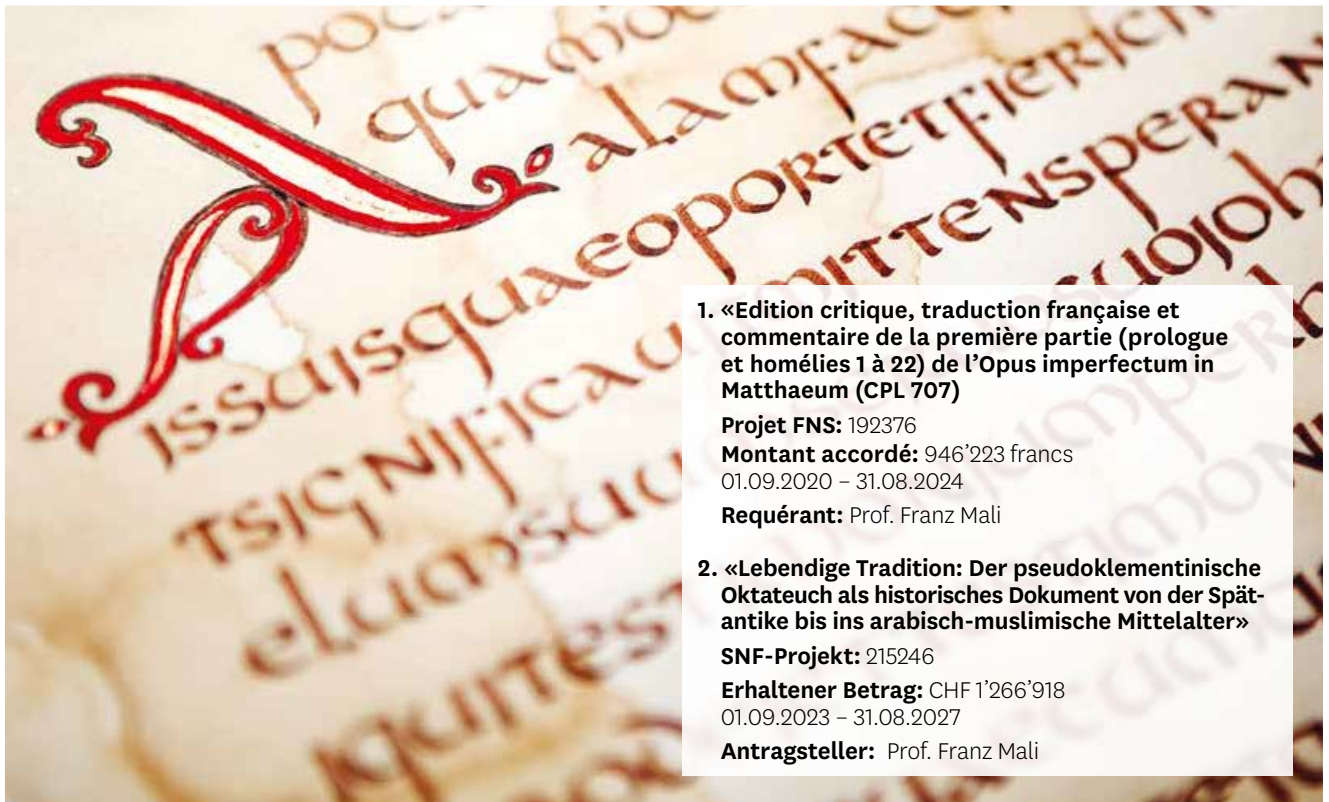 poc
quam
alamfac
issuisquaeoportetfierich
tsignificau
mittensperan
suojoh
iquitest
1. «Edition critique, traduction française et
commentaire de la première partie (prologue
et homélies 1 à 22) de l’Opus imperfectum in
Matthaeum (CPL 707)
Projet FNS: 192376
Montant accordé: 946’223 francs
01.09.2020 – 31.08.2024
Requérant: Prof. Franz Mali
2. «Lebendige Tradition: Der pseudoklementinische
Oktateuch als historisches Dokument von der Spät-
antike bis ins arabisch-muslimische Mittelalter»
SNF-Projekt: 215246
Erhaltener Betrag: CHF 1’266’918
01.09.2023 – 31.08.2027
Antragsteller: Prof. Franz Mali